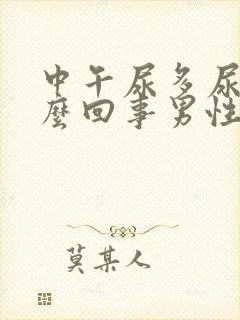 中午尿多尿
麼回事男性
莫某人